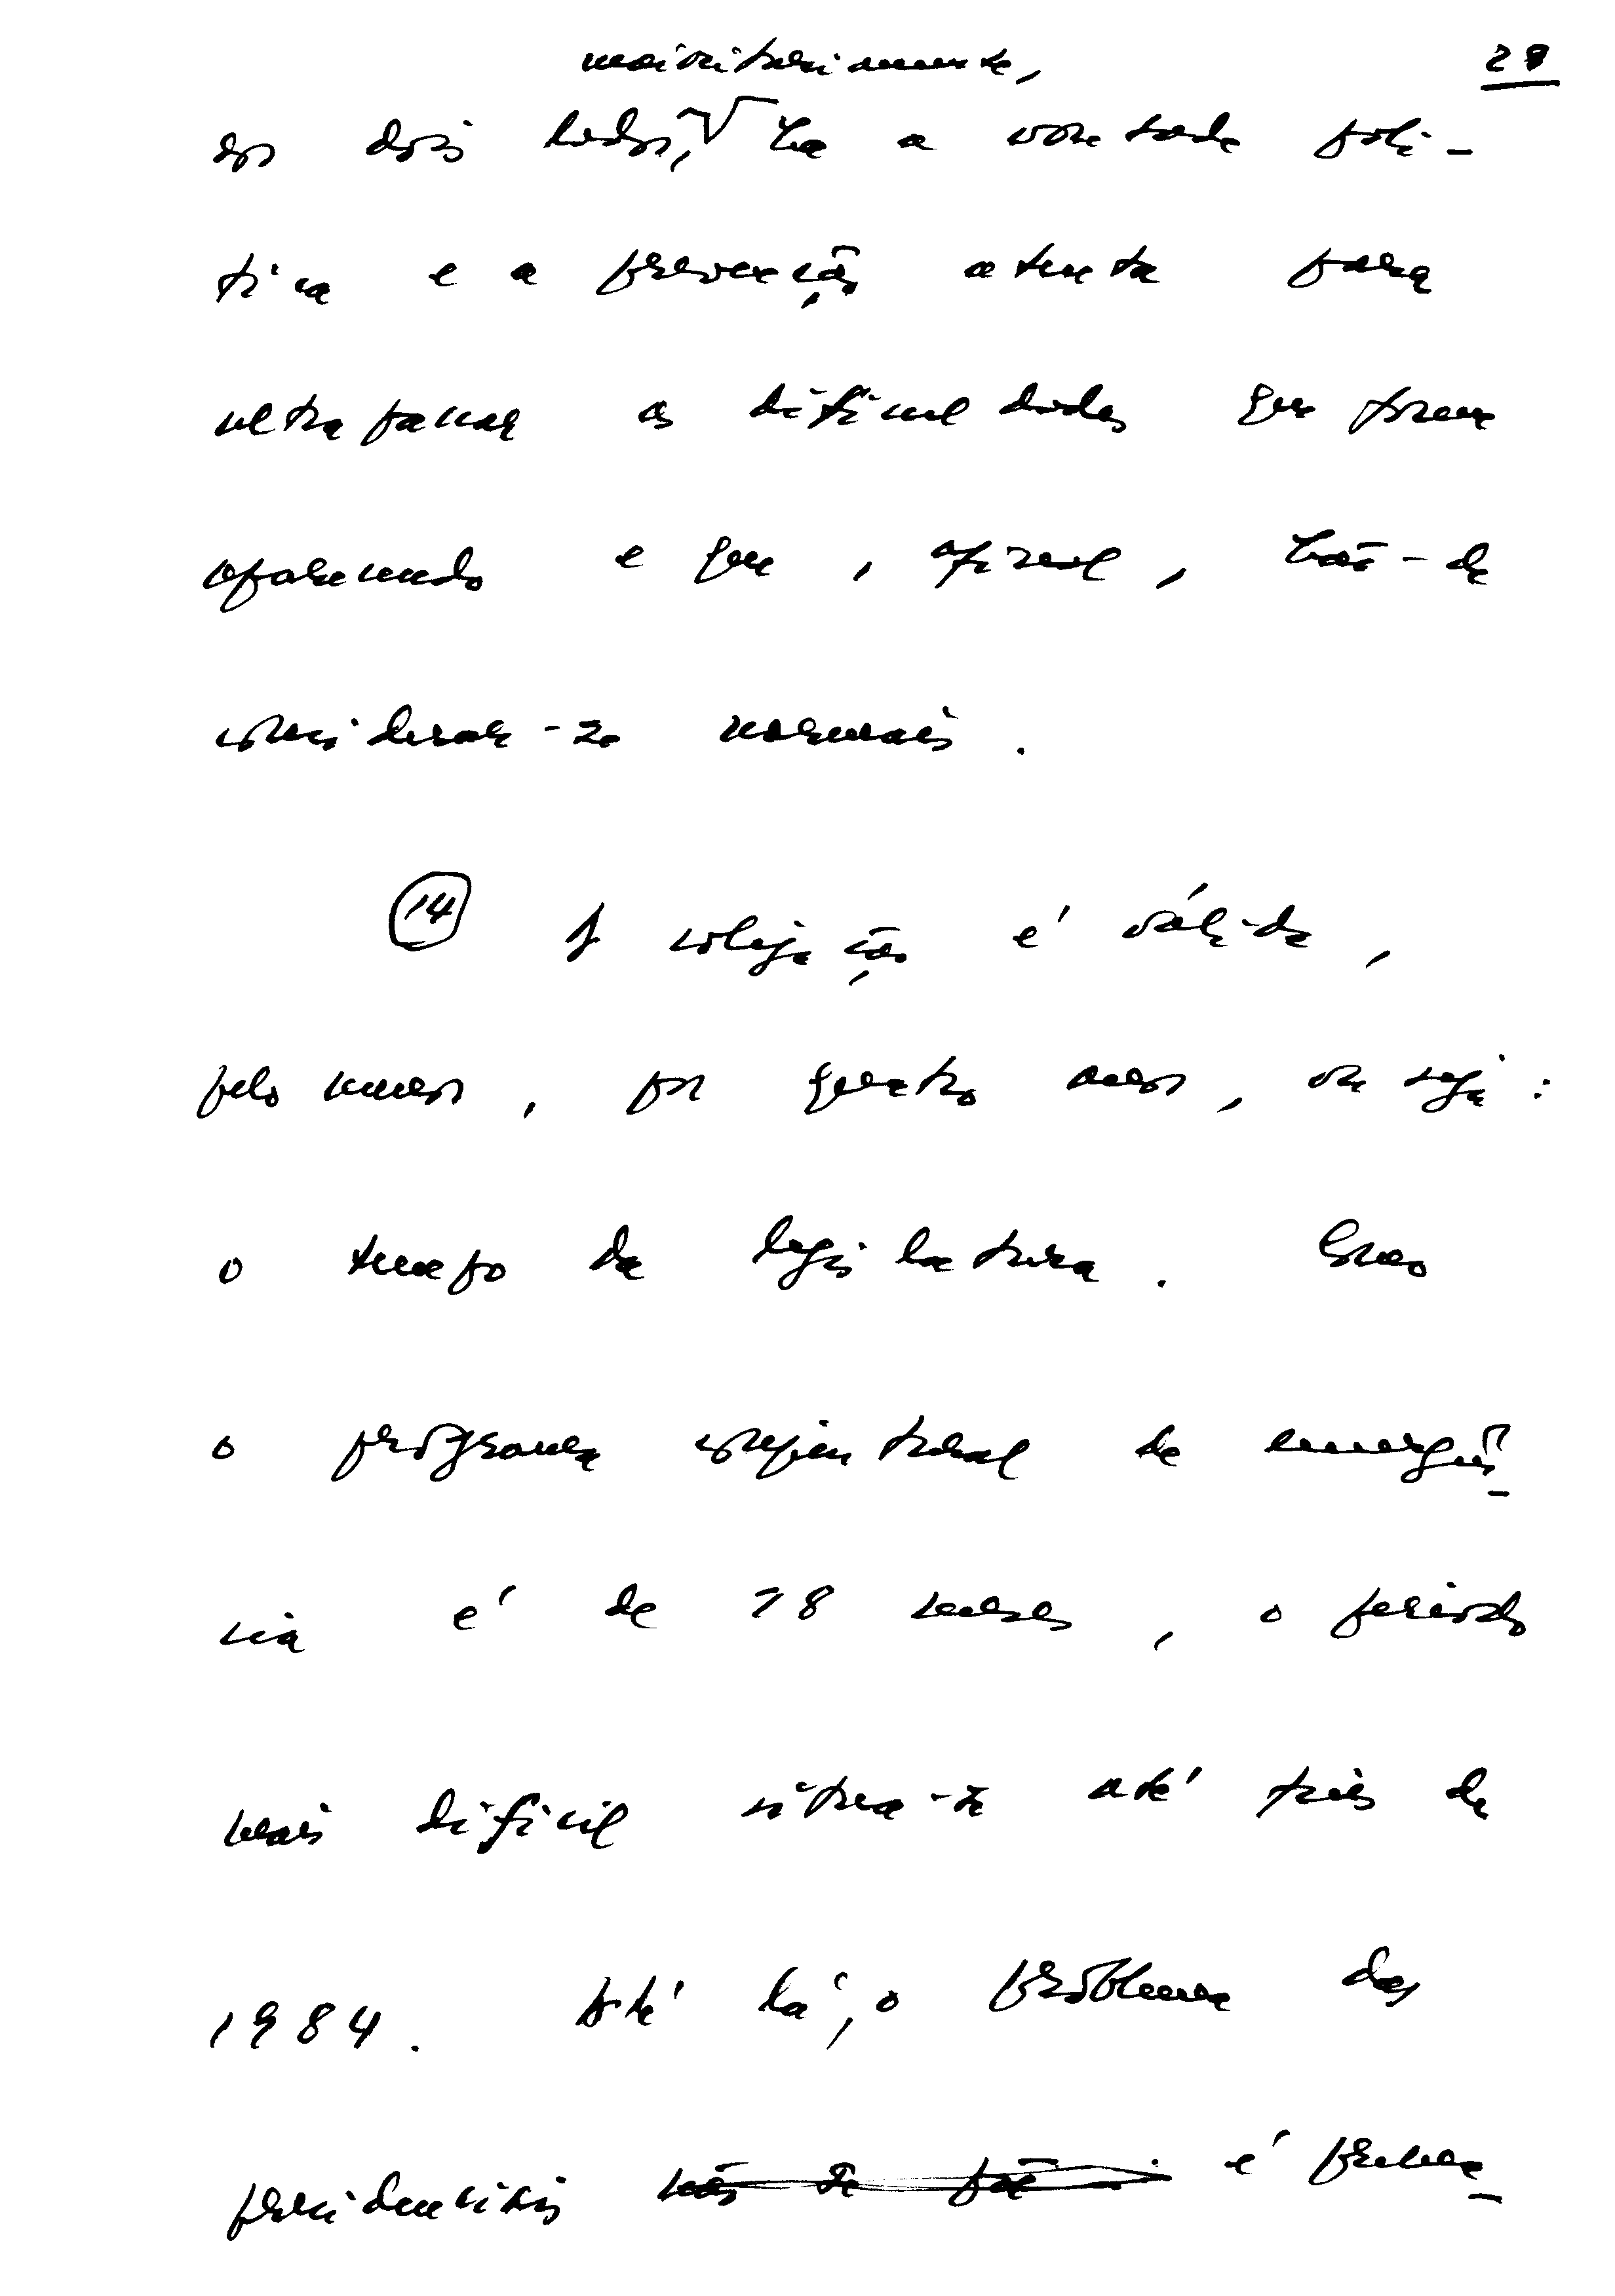 maioritariamente,
28
os dois lados, há a vontade polí-
tica e a prevenção atenta para
ultrapassar as dificuldades que forem
aparecendo e que, afinal, hão-de
considerar-se normais.
14 A coligação é válida,
pelo menos, por quatro anos, ou seja:
o tempo da legislatura. Como
o programa conjuntural de emergên-
cia é de 18 meses, o período
mais difícil situa-se até fins de
1984. Até lá, o problema das
presidenciais não se põe é prema-